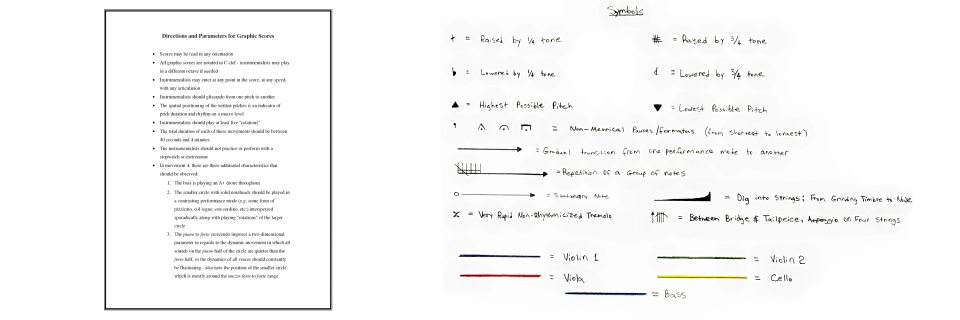 Directions and Parameters for Graphic Scores
• Scores may be read in any orientation
• All graphic scores are notated in C-clef - instrumentalists may play
in a different octave if needed
• Instrumentalists may enter at any point in the score, at any speed,
with any articulation
• Instrumentalists should glissando from one pitch to another
• The spatial positioning of the written pitches is an indicator of
pitch duration and rhythm on a macro level
• Instrumentalists should play at least five "rotations"
• The total duration of each of these movements should be between
40 seconds and 4 minutes
• The instrumentalists should not practice or perform with a
stopwatch or metronome
• In movement 4, there are three additional characteristics that
should be observed:
1. The bass is playing an A♭ drone throughout
2. The smaller circle with solid noteheads should be played in
a contrasting performance mode (e.g. some form of
pizzicato, col legno, con sordino, etc.) interspersed
sporadically along with playing "rotations" of the larger
circle
3. The piano to forte crescendo imposes a two-dimensional
parameter in regards to the dynamic movement in which all
sounds on the piano half of the circle are quieter than the
forte half, so the dynamics of all voices should constantly
be fluctuating - also note the position of the smaller circle
which is mostly around the mezzo-forte to forte range
Symbols
= Raised by 1/4 tone
= Raised by 3/4 tone
= Lowered by 1/4 tone
= Lowered by 3/4 tone
▲ = Highest Possible Pitch
▼ = Lowest Possible Pitch
= Non-Metrical Pauses/Fermatas (from shortest to longest)
= Gradual transition from one performance mode to another
= Repetition of a group of notes
= Stationary Note
= Dig into Strings; From Grinding Timbre to Node
= Very Rapid Non-Rhythmicized Tremolo
= Between Bridge & Tailpiece, Arpeggio on Four Strings
= Violin 1
= Violin 2
= Viola
= Cello
= Bass